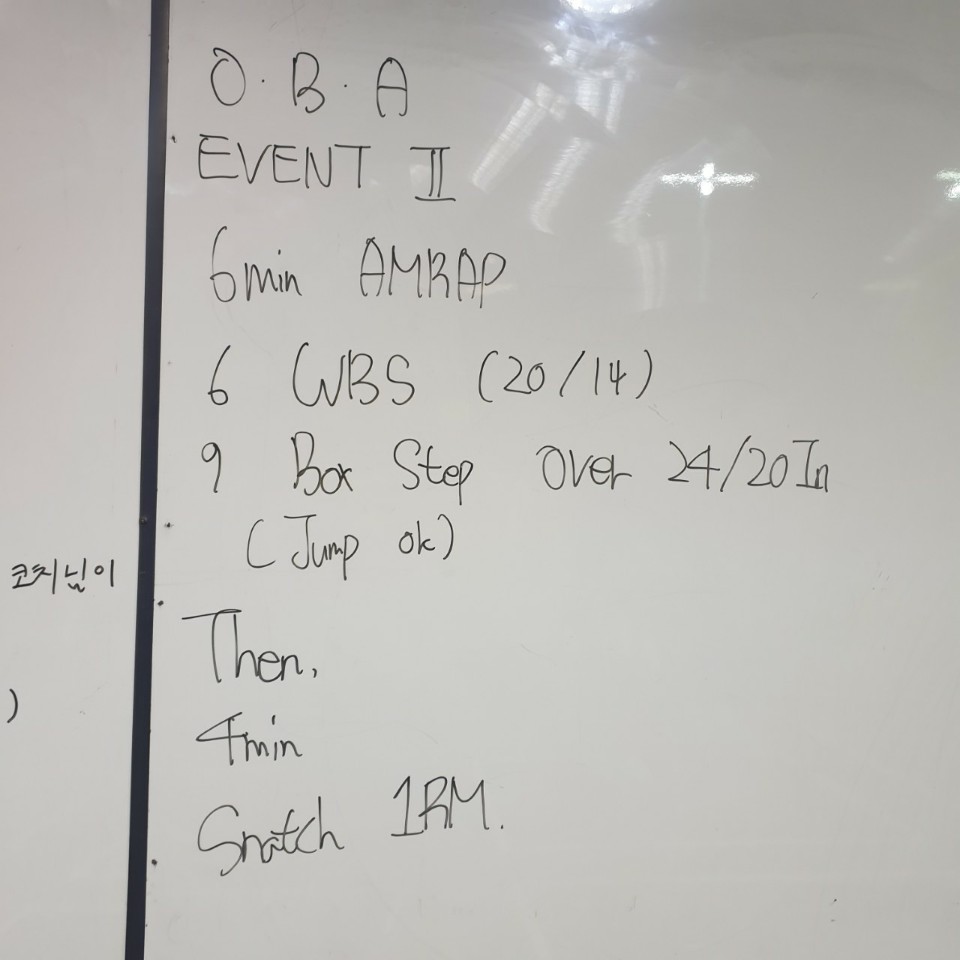 O.B.A
EVENT II
6min AMRAP
6 WBS (20/14)
9 Box Step Over 24/20 In
(Jump ok)
Then,
4min
Snatch 1RM.
코치님이
)